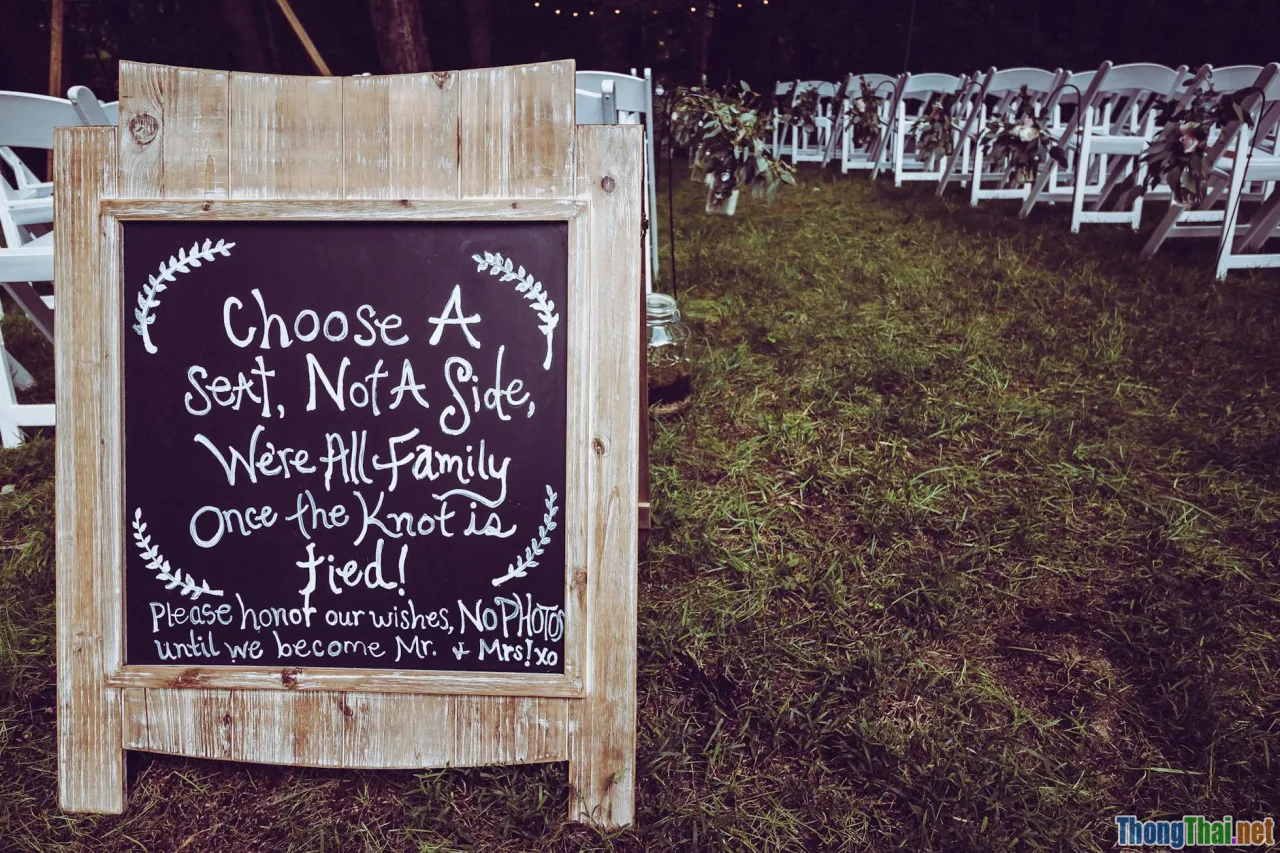 Choose A
Seat, Not A Side,
We're All Family
Once the Knot is
tied!
Please honor our wishes, NO PHOTOS
until we become Mr. + Mrs! xo
ThongThai.net